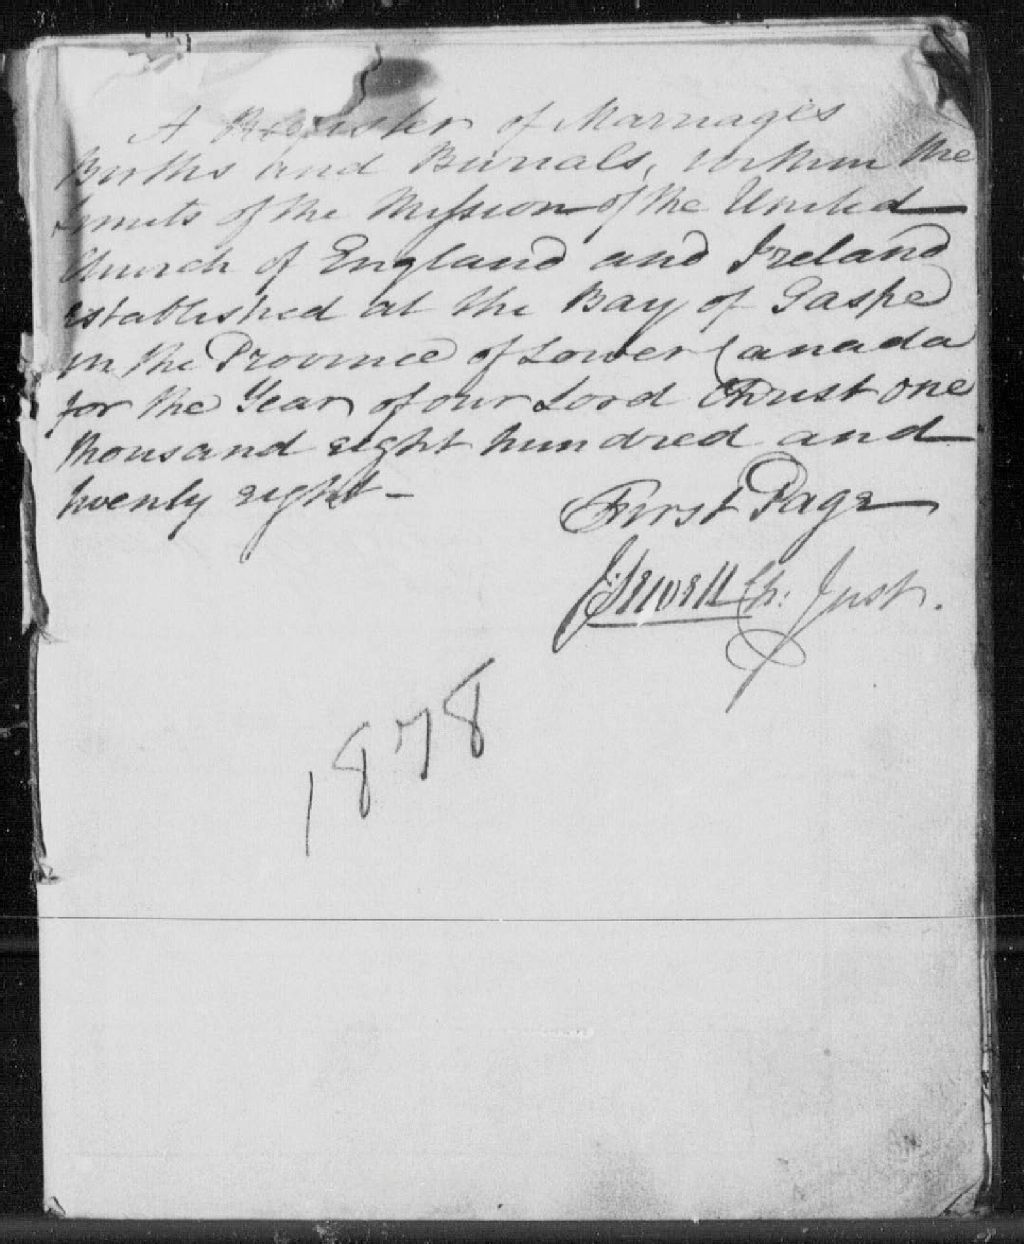 A Register of Marriages
Births and Burials, within the
Limits of the Mission of the United
Church of England and Ireland
established at the Bay of Gaspe
in the Province of Lower Canada
for the Year of our Lord Christ one
thousand eight hundred and
twenty eight -
First Page
J: Sewell Ch: Just.
1878